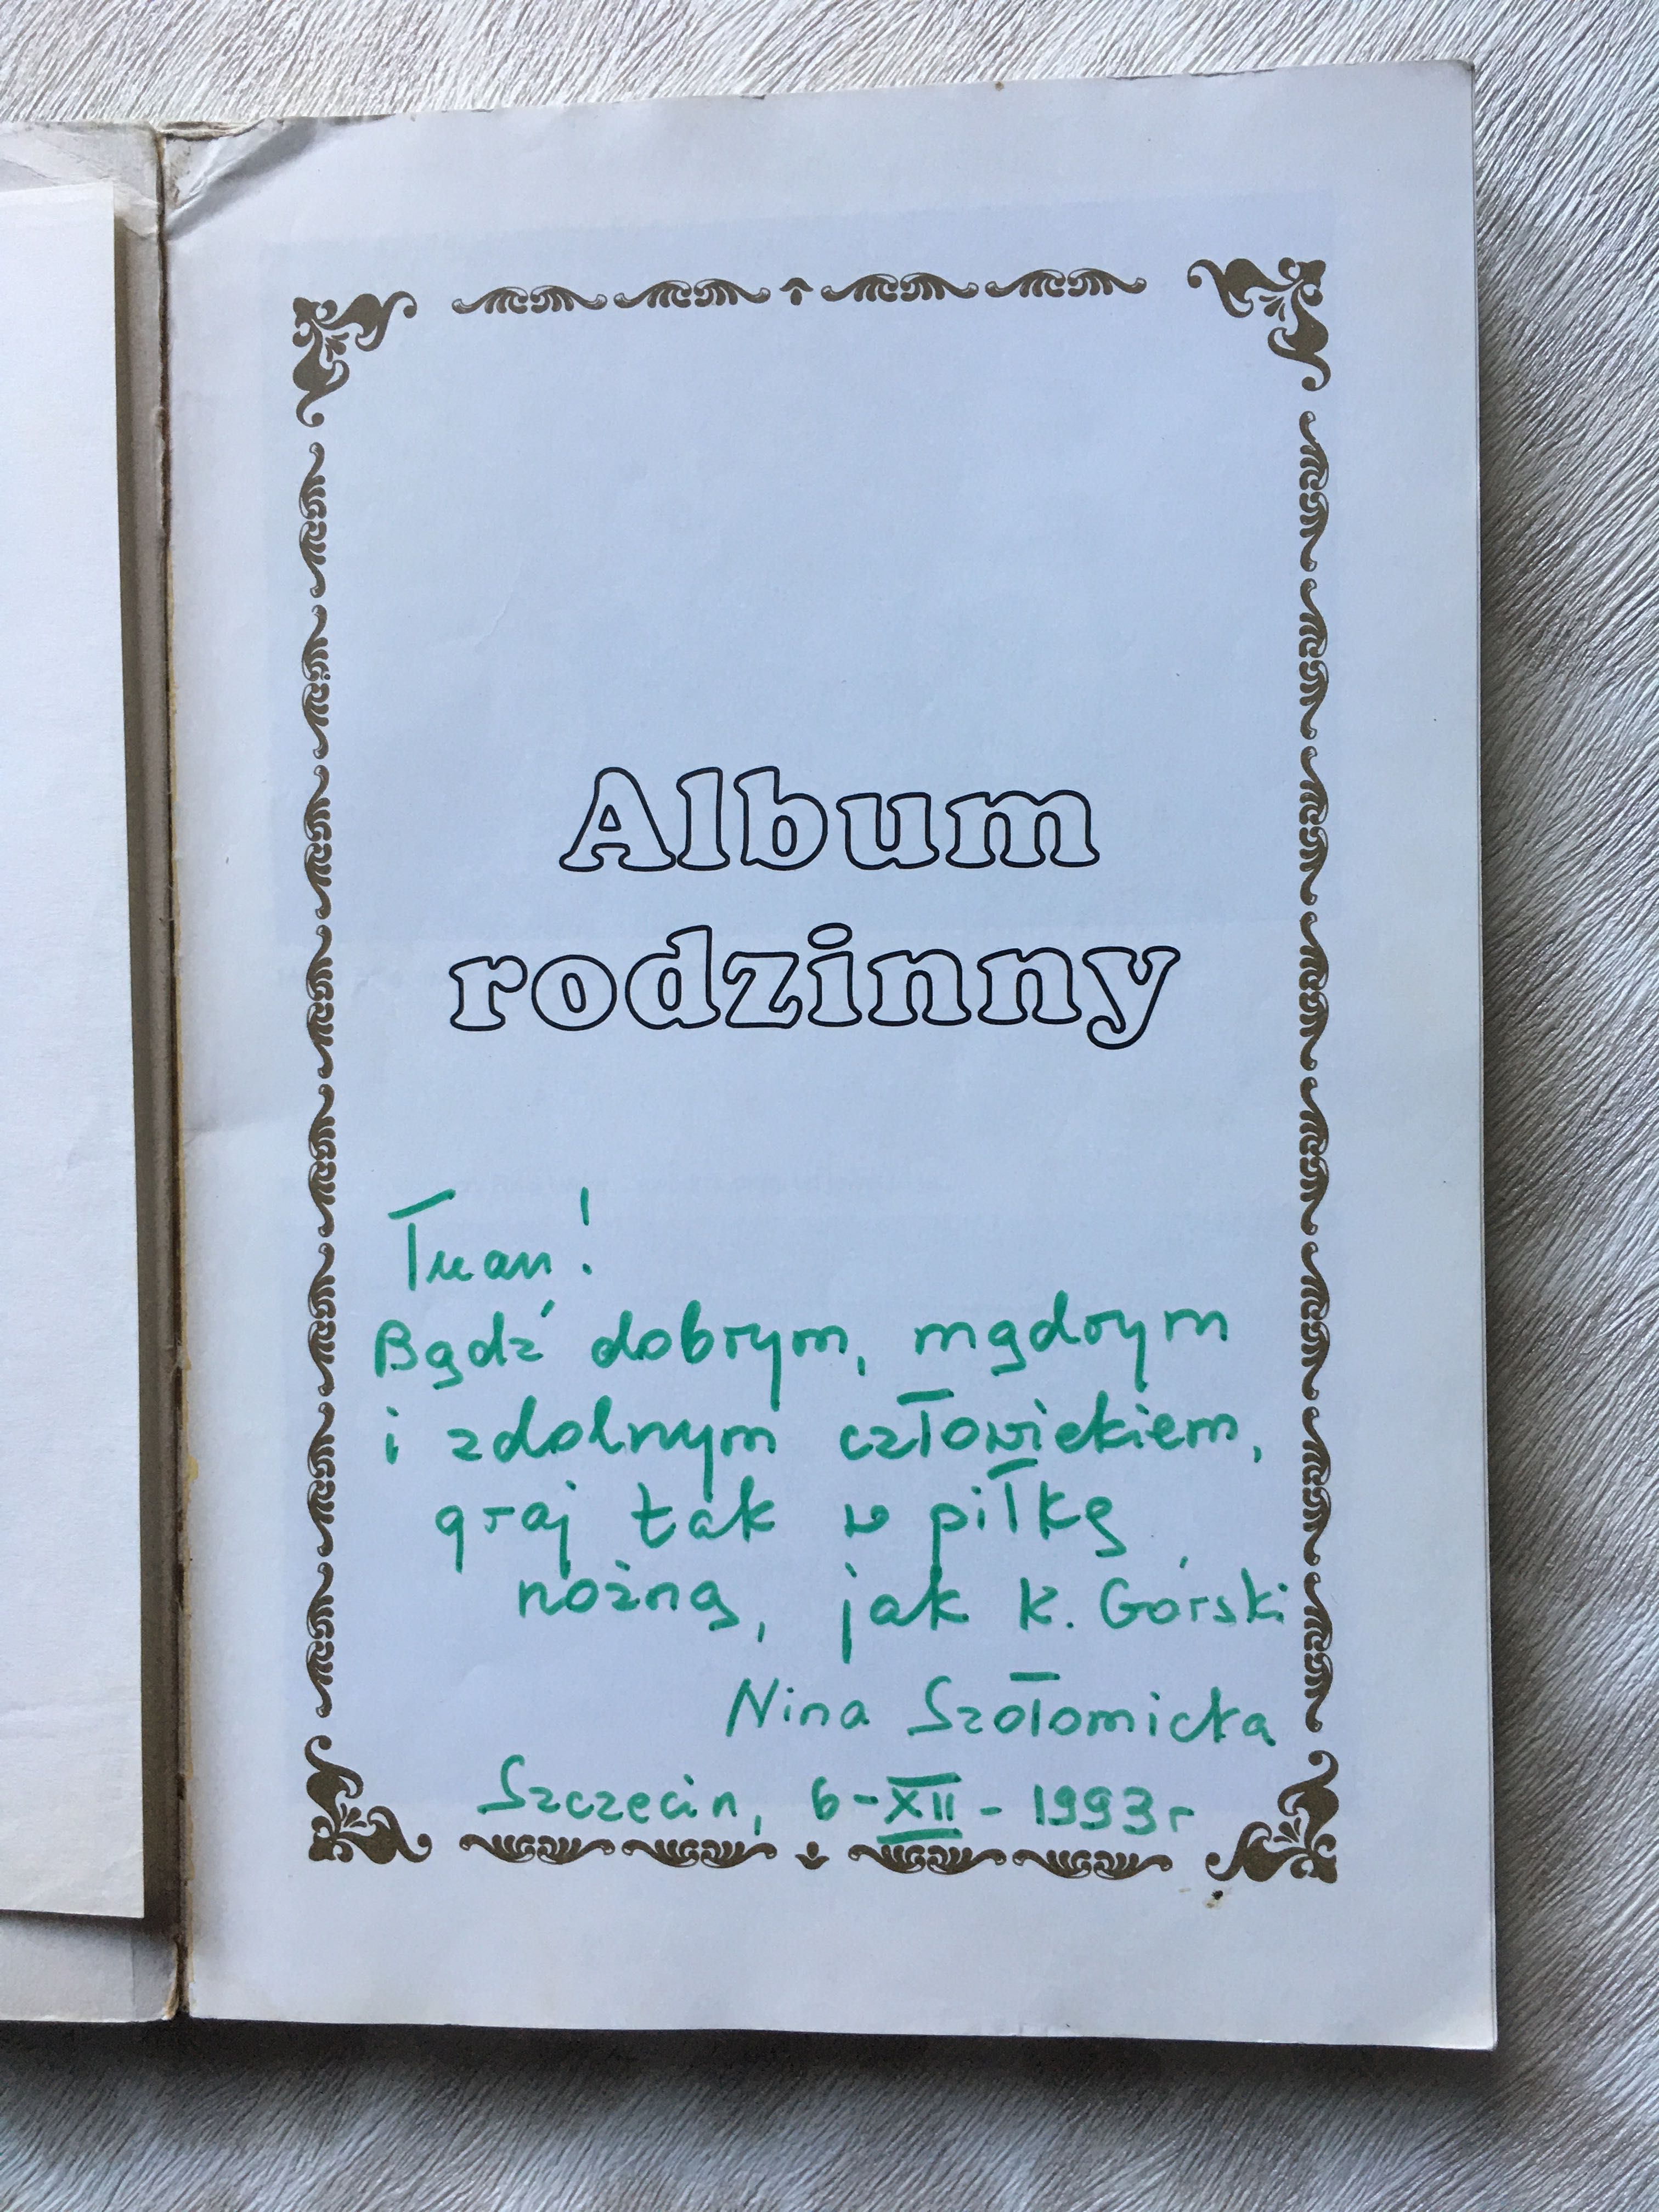 Album
rodzinny
Tuan!
Bądź dobrym, mądrym
i zdolnym człowiekiem,
graj tak w piłkę
nożną, jak K. Górski
Nina Szołomicka
Szczecin, 6-XII-1993r